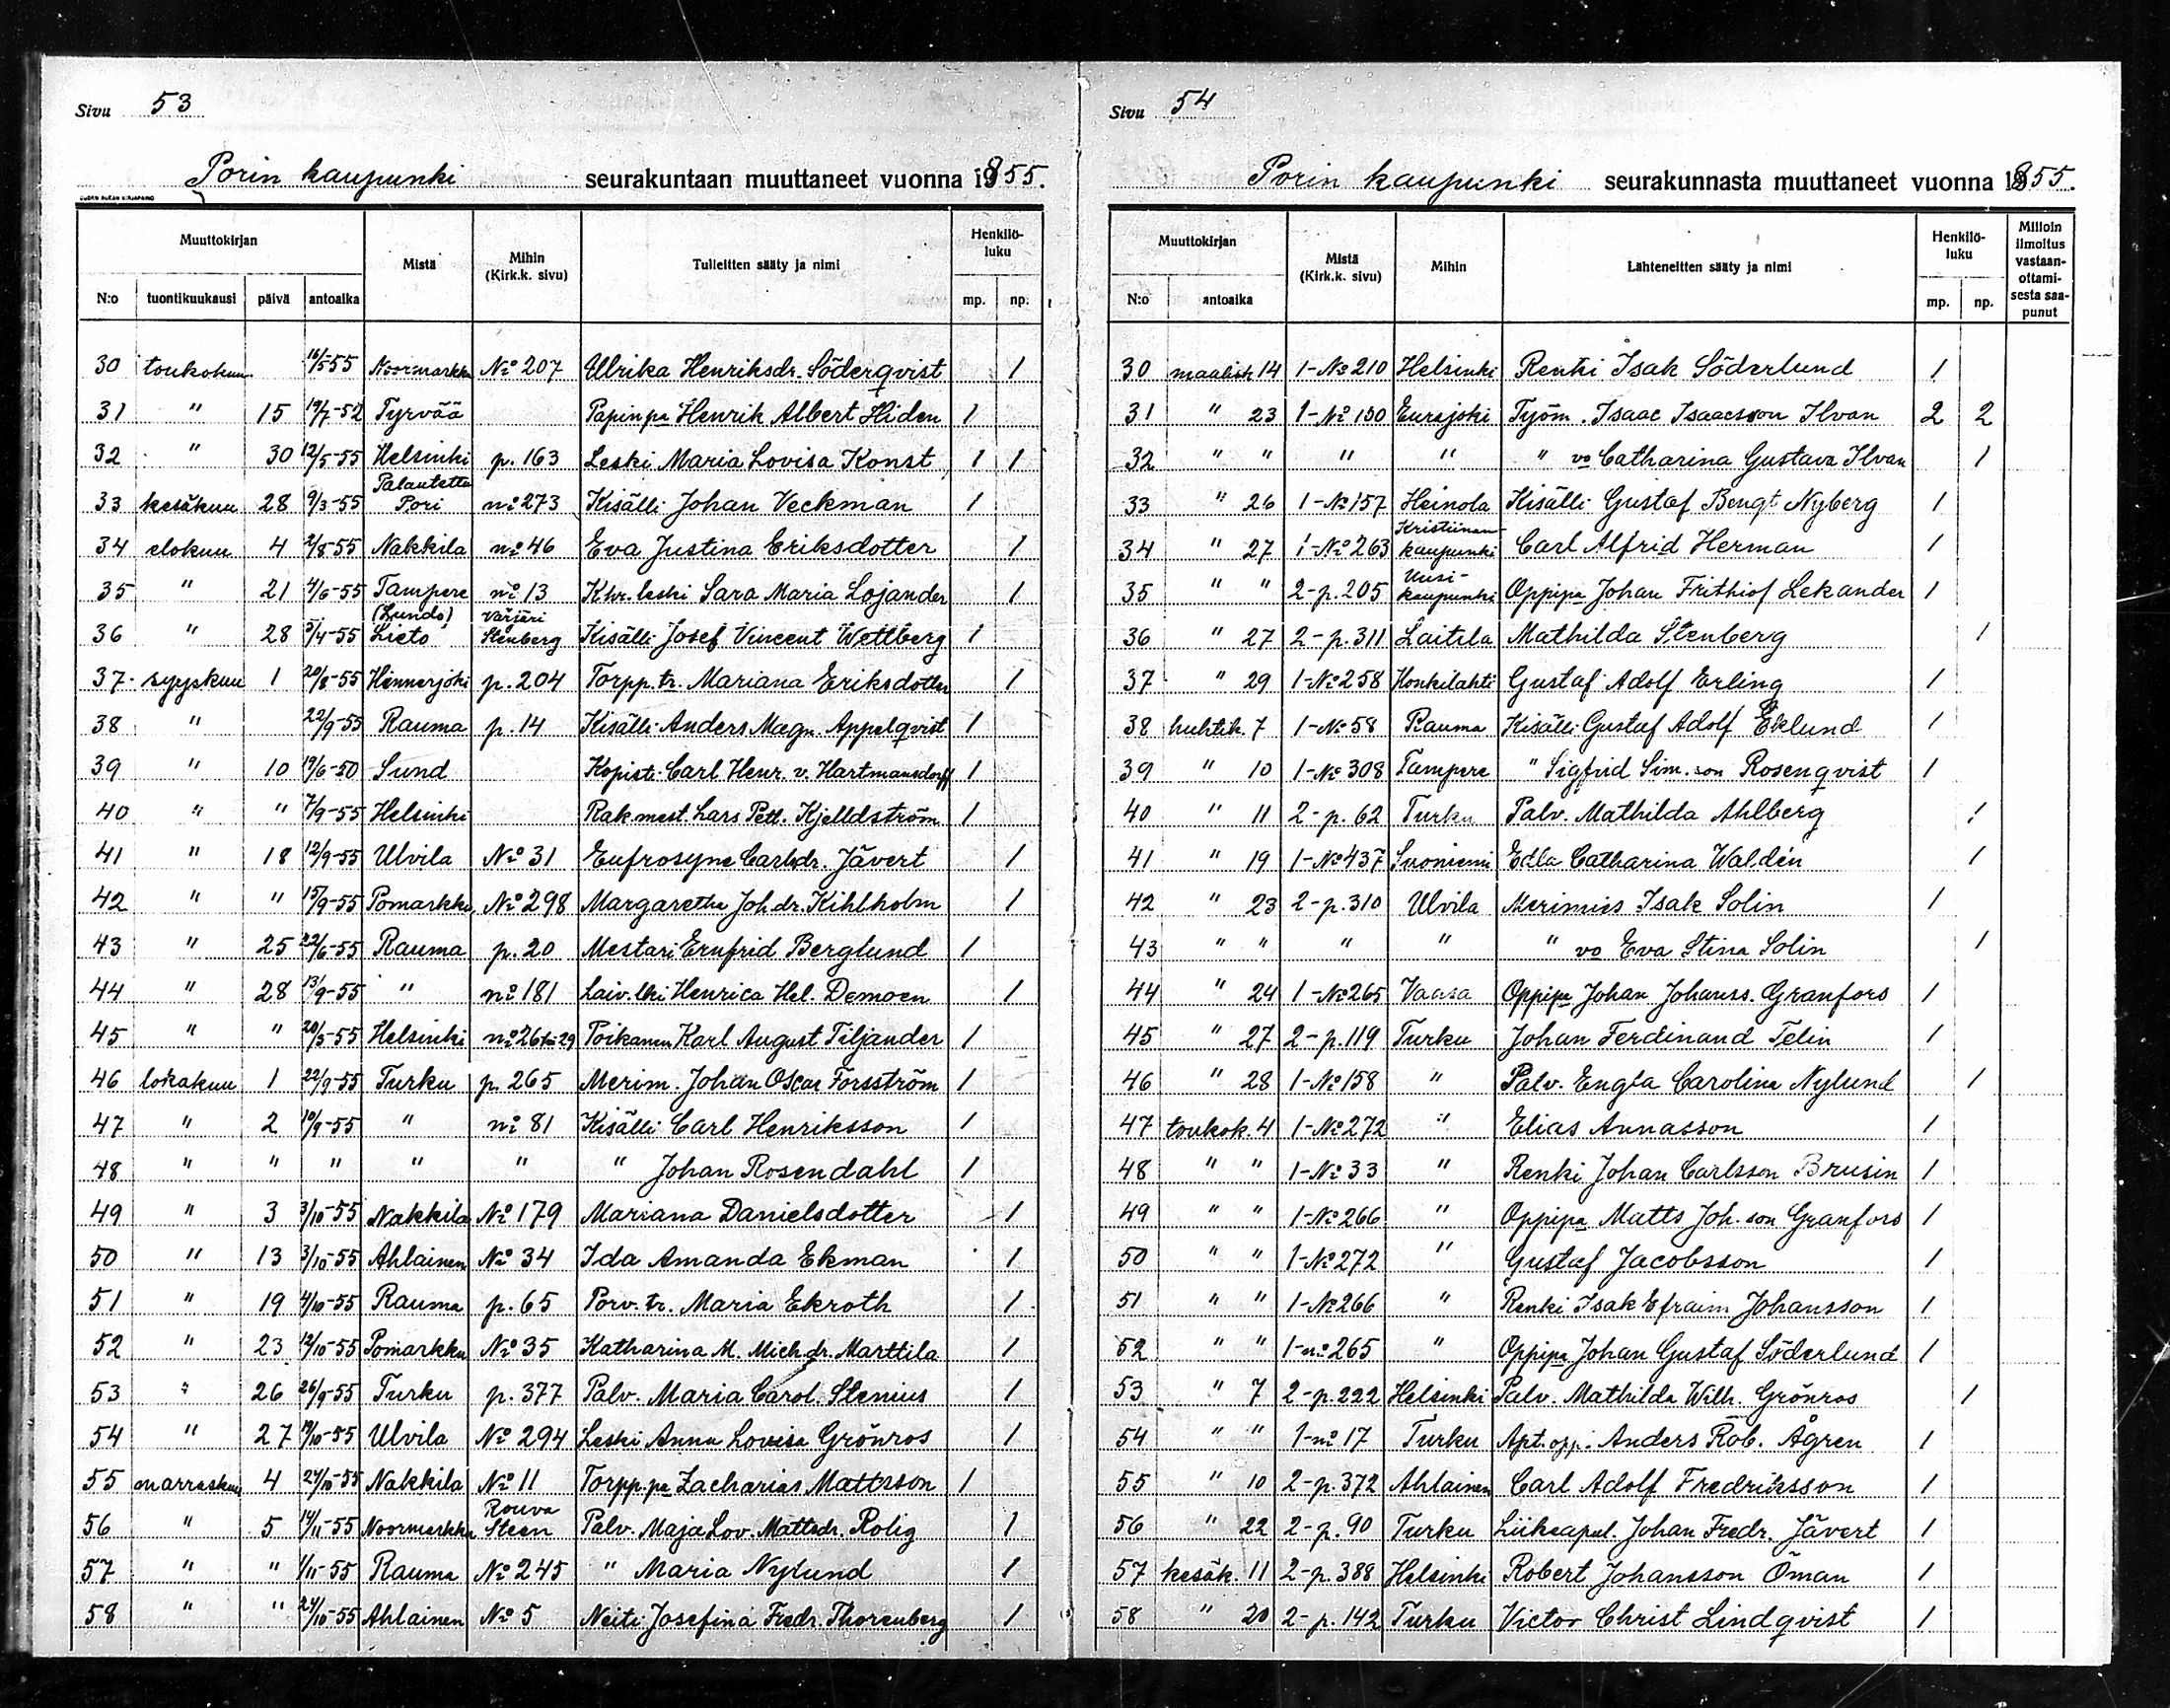 Sivu 53
Porin kaupunki seurakuntaan muuttaneet vuonna 1855.
Muuttokirjan Mistä Mihin (Kirk.k. sivu) Tulleitten sääty ja nimi Henkilö-luku
N:o tuontikuukausi päivä antoaika mp. np.
30 toukokuu 16/5-55 Noormarkku No 207 Ulrika Henriksdr. Söderqvist 1
31 " 15 19/7-52 Tyrvää Papinpa Henrik Albert Hiden 1
32 " 30 12/5-55 Helsinki p. 163 Leski Maria Lovisa Konst 1 1
33 kesäkuu 28 9/3-55 Palautettu Pori no 273 Kisälli Johan Veckman 1
34 elokuu 4 2/8-55 Nakkila no 46 Eva Justina Eriksdotter 1
35 " 21 4/6-55 Tampere no 13 Khr. leski Sara Maria Lojander 1
36 " 28 3/4-55 (Lundo) Lieto Värjäri Stenberg Kisälli Josef Vincent Wettberg 1
37 syyskuu 1 20/8-55 Hinnerjoki p. 204 Torpp. tr. Mariana Eriksdotter 1
38 " 22/9-55 Rauma p. 14 Kisälli Anders Magn. Appelqvist 1
39 " 10 19/6-50 Sund Kopisti Carl Henr. v. Hartmansdorff 1
40 " " 7/9-55 Helsinki Rak.mest. Lars Pett. Kjelldström 1
41 " 18 12/9-55 Ulvila No 31 Eufrosyne Carlsdr. Jävert 1
42 " " 15/9-55 Pomarkku No 298 Margaretha Joh.dr. Kihlholm 1
43 " 25 22/6-55 Rauma p. 20 Mestari Ernfrid Berglund 1
44 " 28 13/9-55 " no 181 Laiv. lki Henrica Hel. Demoen 1
45 " " 20/5-55 Helsinki no 26 29 Poikamies Karl August Tiljander 1
46 lokakuu 1 22/9-55 Turku p. 265 Merim. Johan Oscar Forsström 1
47 " 2 10/9-55 " no 81 Kisälli Carl Henriksson 1
48 " " " " " " Johan Rosendahl 1
49 " 3 3/10-55 Nakkila No 179 Mariana Danielsdotter 1
50 " 13 3/10-55 Ahlainen No 34 Ida Amanda Ekman 1
51 " 19 4/10-55 Rauma p. 65 Porv. tr. Maria Ekroth 1
52 " 23 12/10-55 Pomarkku No 35 Katharina M. Mich.dr. Marttila 1
53 " 26 26/9-55 Turku p. 377 Palv. Maria Carol. Stenius 1
54 " 27 19/10-55 Ulvila No 294 Leski Anna Lovisa Grönros 1
55 marraskuu 4 24/10-55 Nakkila No 11 Torpp.pa Zacharias Mattsson 1
56 " 5 14/11-55 Noormarkku Rouva Steen Palv. Maja Lov. Mattsdr. Rolig 1
57 " " 1/11-55 Rauma No 245 " Maria Nylund 1
58 " " 24/10-55 Ahlainen No 5 Neiti Josefina Fredr. Thorenberg 1
Sivu 54
Porin kaupunki seurakunnasta muuttaneet vuonna 1855.
Muuttokirjan Mistä (Kirk.k. sivu) Mihin Lähteneitten sääty ja nimi Henkilö-luku Milloin ilmoitus vastaan-ottami-sesta saa-punut
N:o antoaika mp. np.
30 maalisk 14 1-No 210 Helsinki Renki Isak Söderlund 1
31 " 23 1-No 150 Eurajoki Työm. Isaac Isaacsson Ilvan 2 2
32 " " " " " vo Catharina Gustava Ilvan 1
33 " 26 1-No 157 Heinola Kisälli Gustaf Bengt Nyberg 1
34 " 27 1-No 263 Kristiinankaupunki Carl Alfrid Herman 1
35 " " 2-p. 205 Uusi-kaupunki Oppipa Johan Frithiof Lekander 1
36 " 27 2-p. 311 Laitila Mathilda Stenberg 1
37 " 29 1-No 258 Honkilahti Gustaf Adolf Erling 1
38 huhtik. 7 1-No 58 Rauma Kisälli Gustaf Adolf Eklund 1
39 " 10 1-No 308 Tampere " Sigfrid Sim.son Rosenqvist 1
40 " 11 2-p. 62 Turku Palv. Mathilda Ahlberg 1
41 " 19 1-No 437 Suoniemi Edla Catharina Waldén 1
42 " 23 2-p. 310 Ulvila Merimies Isak Solin 1
43 " " " " " vo Eva Stina Solin 1
44 " 24 1-No 265 Vaasa Oppipa Johan Johanss. Granfors 1
45 " 27 2-p. 119 Turku Johan Ferdinand Telin 1
46 " 28 1-No 158 " Palv. Engla Carolina Nylund 1
47 toukok. 4 1-No 272 " Elias Annasson 1
48 " " 1-No 33 " Renki Johan Carlsson Brusin 1
49 " " 1-No 266 " Oppipa Matts Joh.son Granfors 1
50 " " 1-No 272 " Gustaf Jacobsson 1
51 " " 1-No 266 " Renki Isak Efraim Johansson 1
52 " " 1-no 265 " Oppipa Johan Gustaf Söderlund 1
53 " 7 2-p. 222 Helsinki Palv. Mathilda Wilh. Grönros 1
54 " " 1-no 17 Turku Apt. opp. Anders Rob. Ågren 1
55 " 10 2-p. 372 Ahlainen Carl Adolf Fredriksson 1
56 " 22 2-p. 90 Turku Liikeapul. Johan Fredr. Jävert 1
57 kesäk. 11 2-p. 388 Helsinki Robert Johansson Öman 1
58 " 20 2-p. 142 Turku Victor Christ Lindqvist 1